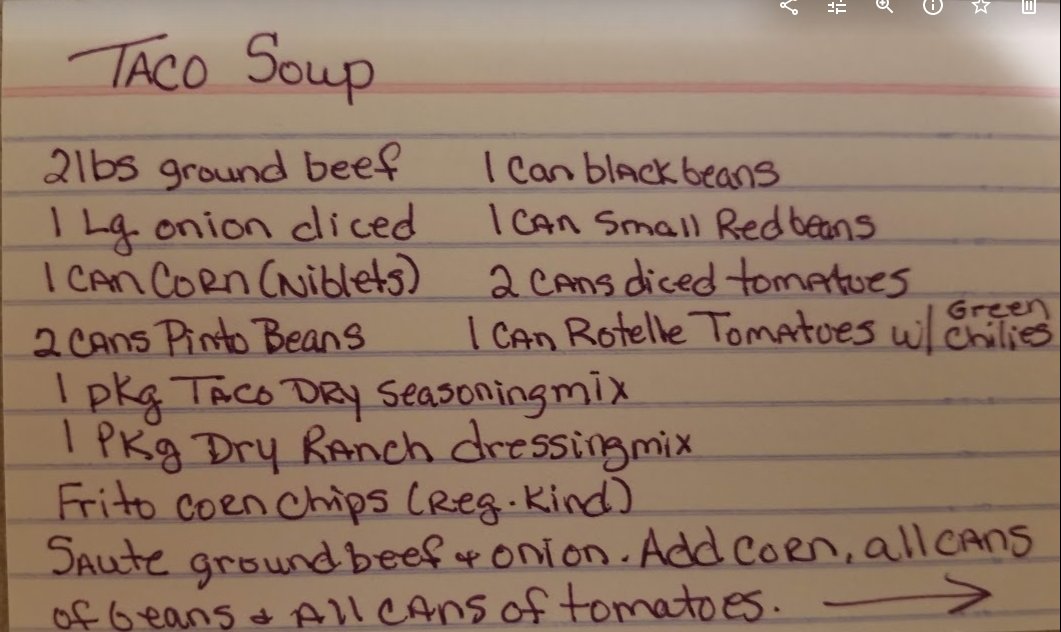 Taco Soup
2lbs ground beef 1 Can black beans
1 Lg. onion diced 1 CAN Small Red beans
1 CAN CORN (Niblets) 2 CANS diced tomatoes
2 CANS Pinto Beans 1 CAN Rotelle Tomatoes w/ Green Chilies
1 pkg TACO DRY seasoning mix
1 PKg Dry RANch dressing mix
Frito CORN Chips (Reg. Kind)
SAute ground beef & onion. Add CORN, all CANS
of beans & All CANS of tomatoes. →